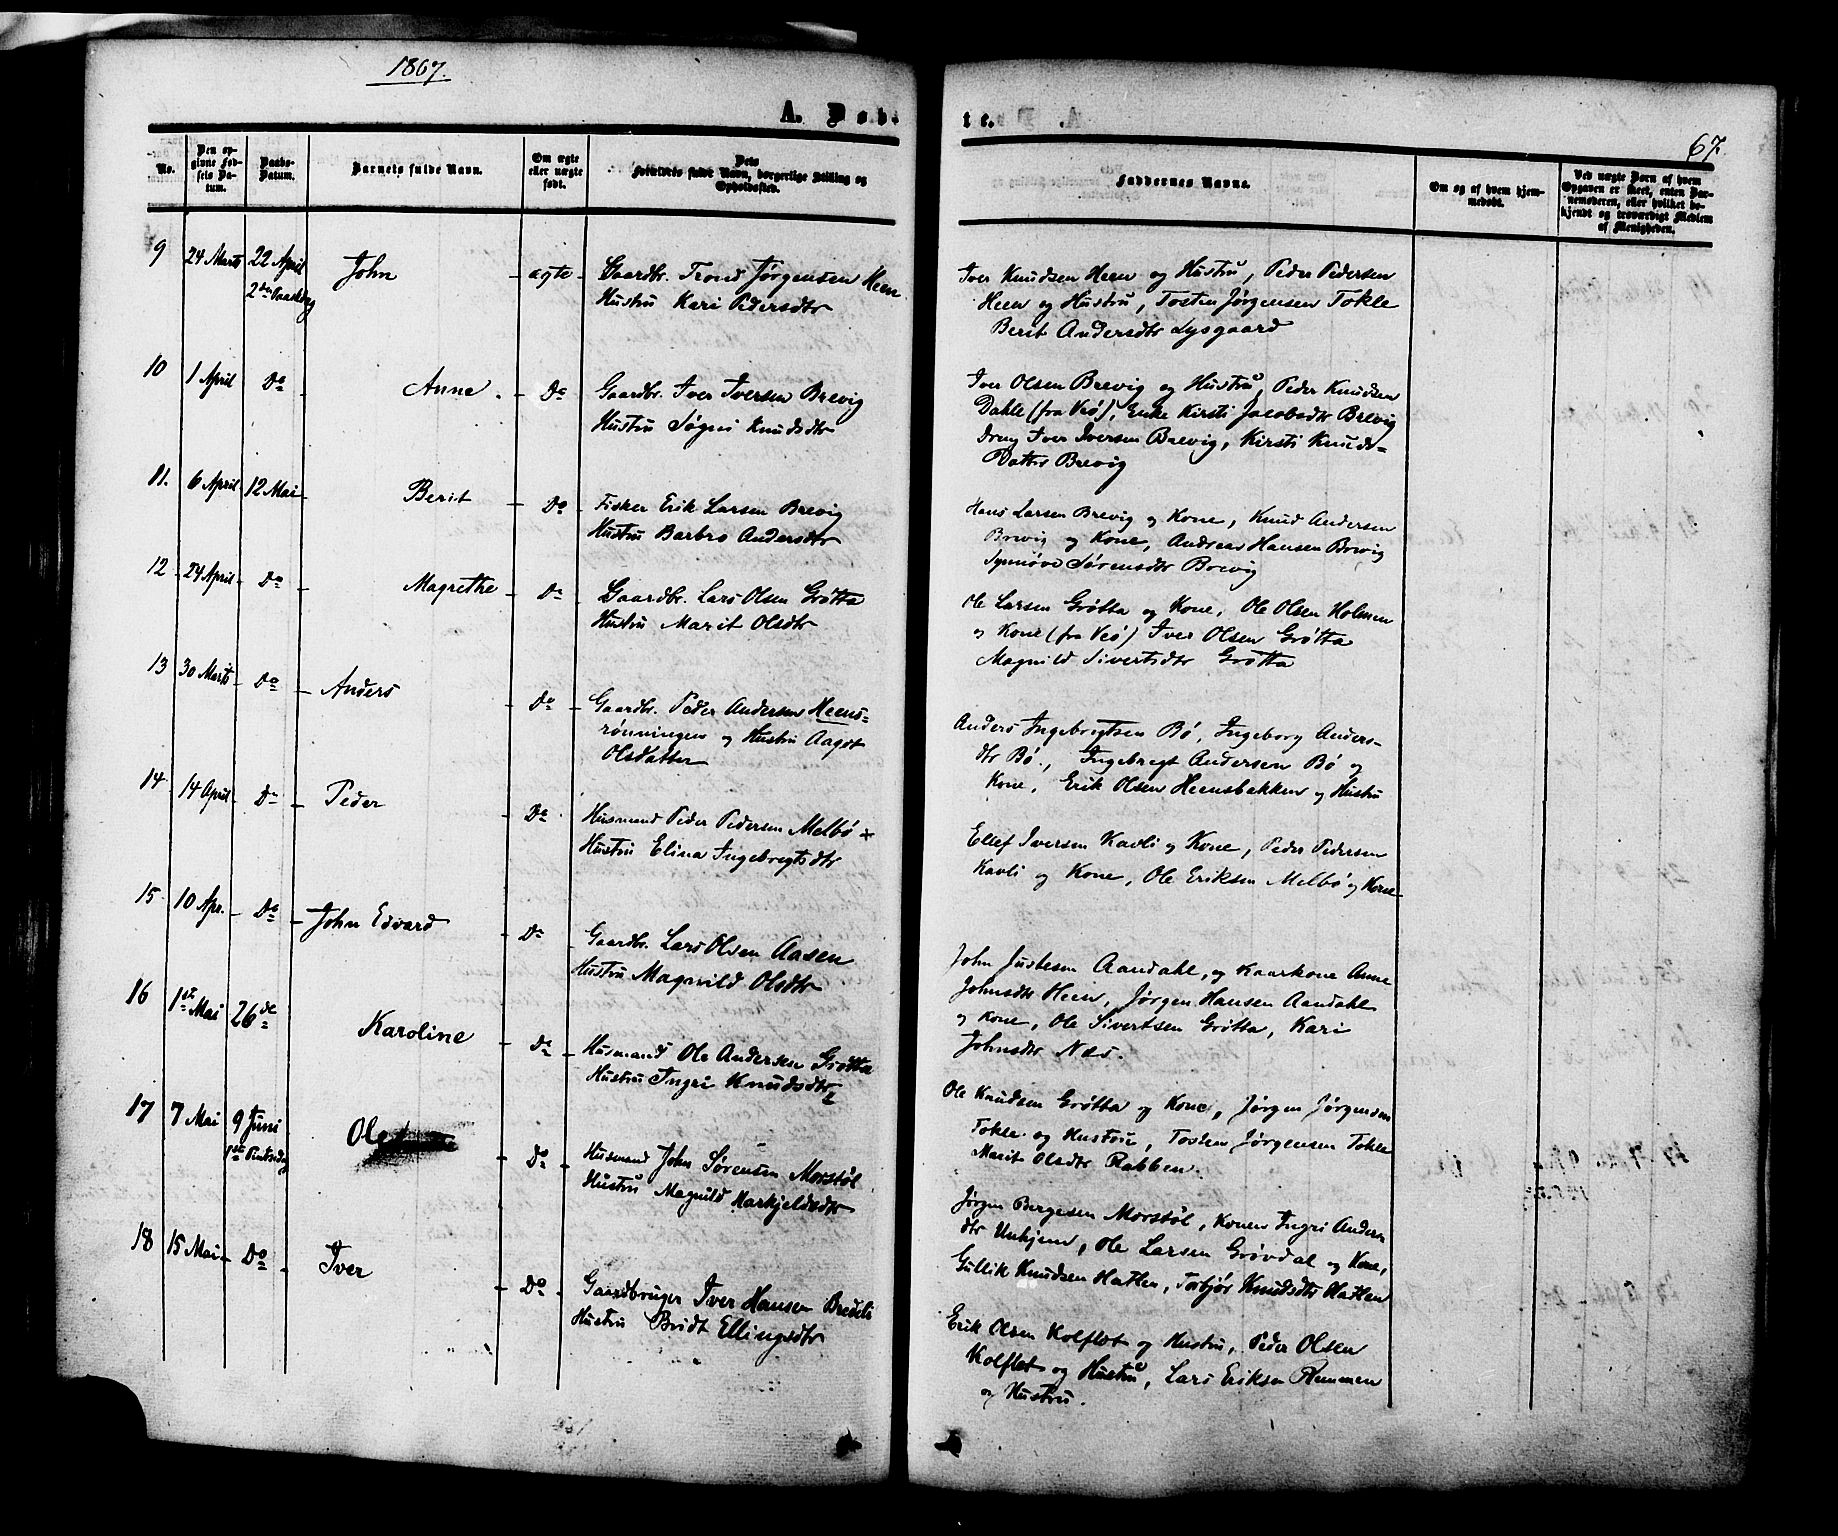 1867.
A. Døb-
te.
67.
No.
Den op-
givne Fød-
sels Da-
tum.
Daabs-
Datum.
Barnets fulde Navn.
Om ægte
eller uægte
født.
Dets
Forældres fulde Navn, borgerlige Stilling og
Opholdssted.
Faddernes Navne.
Om og af hvem hjem-
medøbt.
Ved uægte Børn af hvem
Opgaven er skeet, enten Bar-
nemoderen, eller hvilket be-
kjendt og troværdigt Medlem
af Menigheden.
9 24 Marts 22 April John ægte Gaardbr. Trond Jørgensen Heen
2den Paaskedag Hustru Kari Pedersdtr
Iver Knudsen Heen og Hustru, Peder Pedersen
Heen og Hustru, Tosten Jørgensen Tokle
Berit Andersdtr Lysgaard
10 1 April Do Anne. Do Gaardbr. Iver Iversen Brevig
Hustru Søgni Knudsdtr
Iver Olsen Brevig og Hustru, Peder Knudsen
Dahle (fra Veø), Enke Kirsti Jacobsdtr Brevig
Dreng Iver Iversen Brevig, Kirsti Knuds-
Datter Brevig
11. 6 April 12 Mai Berit Do Fisker Erik Larsen Brevig
Hustru Barbro Andersdtr
Hans Larsen Brevig og Kone, Knud Andersen
Brevig og Kone, Andreas Hansen Brevig
Synnøve Sørensdtr Brevig
12 24 April Do Magrethe Do Gaardbr. Lars Olsen Grøtta
Hustru Marit Olsdtr
Ole Larsen Grøtta og Kone, Ole Olsen Holmen
og Kone (fra Veø) Iver Olsen Grøtta
Magnild Sivertsdtr Grøtta
13 30 Marts Do Anders Do Gaardbr. Peder Andersen Heens-
rønningen og Hustru Aagot
Olsdatter
Anders Ingebrigtsen Bø, Ingeborg Anders-
dtr Bø, Ingebregt Andersen Bø og
Kone, Erik Olsen Heensbakken og Hustru
14 14 April Do Peder Do Husmand Peder Pedersen Melbø
Hustru Elina Ingebregtsdtr
Ellef Iversen Kavli og Kone, Peder Pedersen
Kavli og Kone, Ole Eriksen Melbø og Kone
15 10 Apr. Do John Edvard Do Gaardbr. Lars Olsen Aasen
Hustru Magnild Olsdtr
John Justesen Aandahl, og Kaarkone Anne
Johnsdtr Heen, Jørgen Hansen Aandahl
og Kone, Ole Sivertsen Grøtta, Kari
Johnsdtr Næs.
16 1st Mai 26de Karoline Do Husmand Ole Andersen Grøtta
Hustru Ingri Knudsdtr
Ole Knudsen Grøtta og Kone, Jørgen Jørgensen
Tokle og Hustru, Tosten Jørgensen Tokle
Marit Olsdtr Rabben.
17 7 Mai 9 Juni Ole Do Husmand John Sørensen Morstøl
1st Pintsedag Hustru Magnild Harkjeldsdtr
Jørgen Bergesen Morstøl, Konen Ingri Anders
dtr Unhjem, Ole Larsen Grøvdal og Kone,
Gullik Knudsen Hatlen, Torbjør Knudsdtr Hatlen
18 15 Mai Do Iver Do Gaardbruger Iver Hansen Bredeli
Hustru Bridt Ellingsdtr
Erik Olsen Kolflot og Hustru, Peder Olsen
Kolflot og Hustru, Lars Eriksen Rummen
og Hustru.